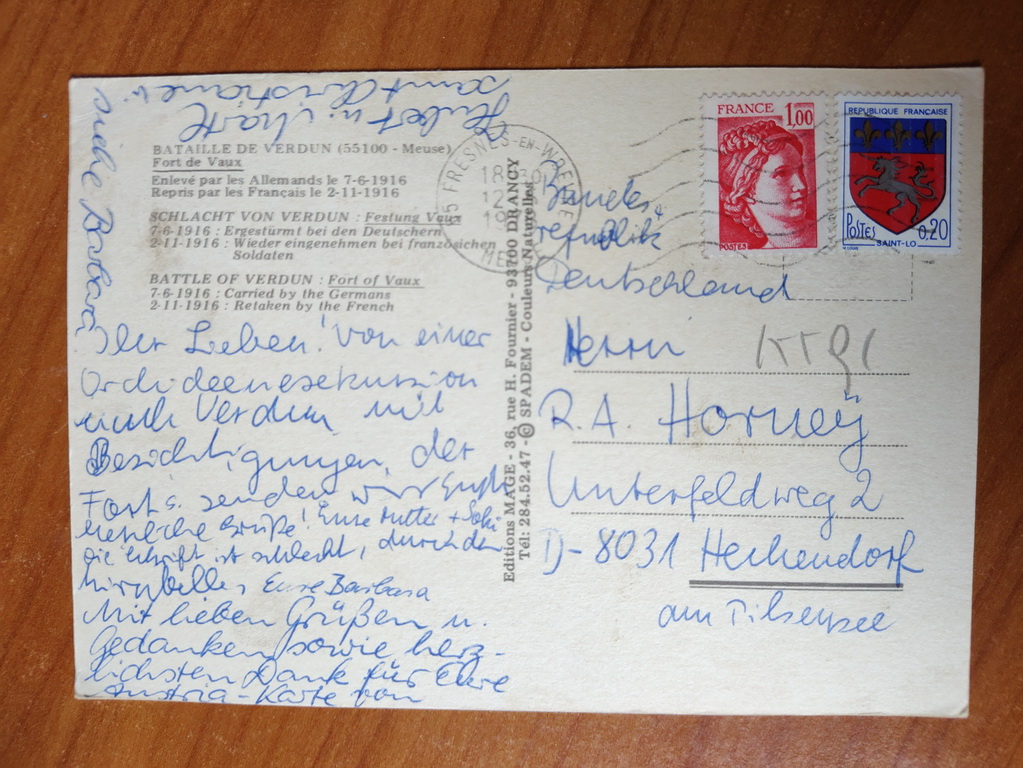 BATAILLE DE VERDUN (55100 - Meuse)
Fort de Vaux
Enlevé par les Allemands le 7-6-1916
Repris par les Français le 2-11-1916
SCHLACHT VON VERDUN : Festung Vaux
7-6-1916 : Ergestürmt bei den Deutschern
2-11-1916 : Wieder eingenehmen bei französichen
Soldaten
BATTLE OF VERDUN : Fort of Vaux
7-6-1916 : Carried by the Germans
2-11-1916 : Retaken by the French
Ihr Lieben! Von einer
Orchideenexkursion
nach Verdun mit
Besichtigungen der
Forts senden wir Euch
herzliche Grüße! Eure Mutter +
die Schrift ist schlecht, durch den
Eure Barbara
Mit lieben Grüßen u.
Gedanken sowie herz-
lichsten Dank für Eure
Austria-Karte von
Hubert u.
samt Christiane
siehe Barbara
Editions MAGE - 36, rue H. Fournier - 93700 DRANCY
Tél: 284.52.47 - © SPADEM - Couleurs Naturelles
FRESNES-EN-WOEVRE
18
12
19
FRANCE
1,00
POSTES
REPUBLIQUE FRANÇAISE
POSTES
0,20
SAINT-LO
Bundes
republik
Deutschland
Herrn
R.A. Horney
Unterfeldweg 2
D-8031 Hechendorf
am Pilsensee